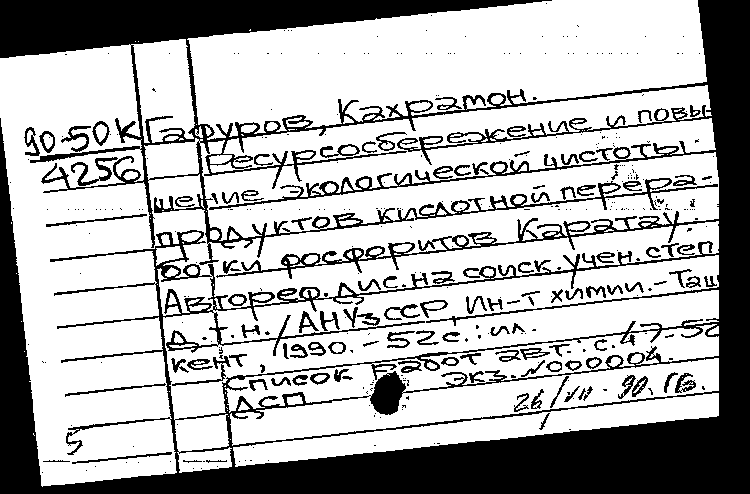 90-50К Гафуров, Кахрамон.
4256 Ресурсосбережение и повы-
шение экологической чистоты
продуктов кислотной перера-
ботки фосфоритов Каратау.
Автореф. дис. на соиск. учен. степ.
д.т.н. / АН УзССР, Ин-т химии. - Таш
кент, 1990. - 52 с. : ил.
Список работ авт.: с. 47-52
ДСП экз. №000004.
26/VII-90. ГБ.
5